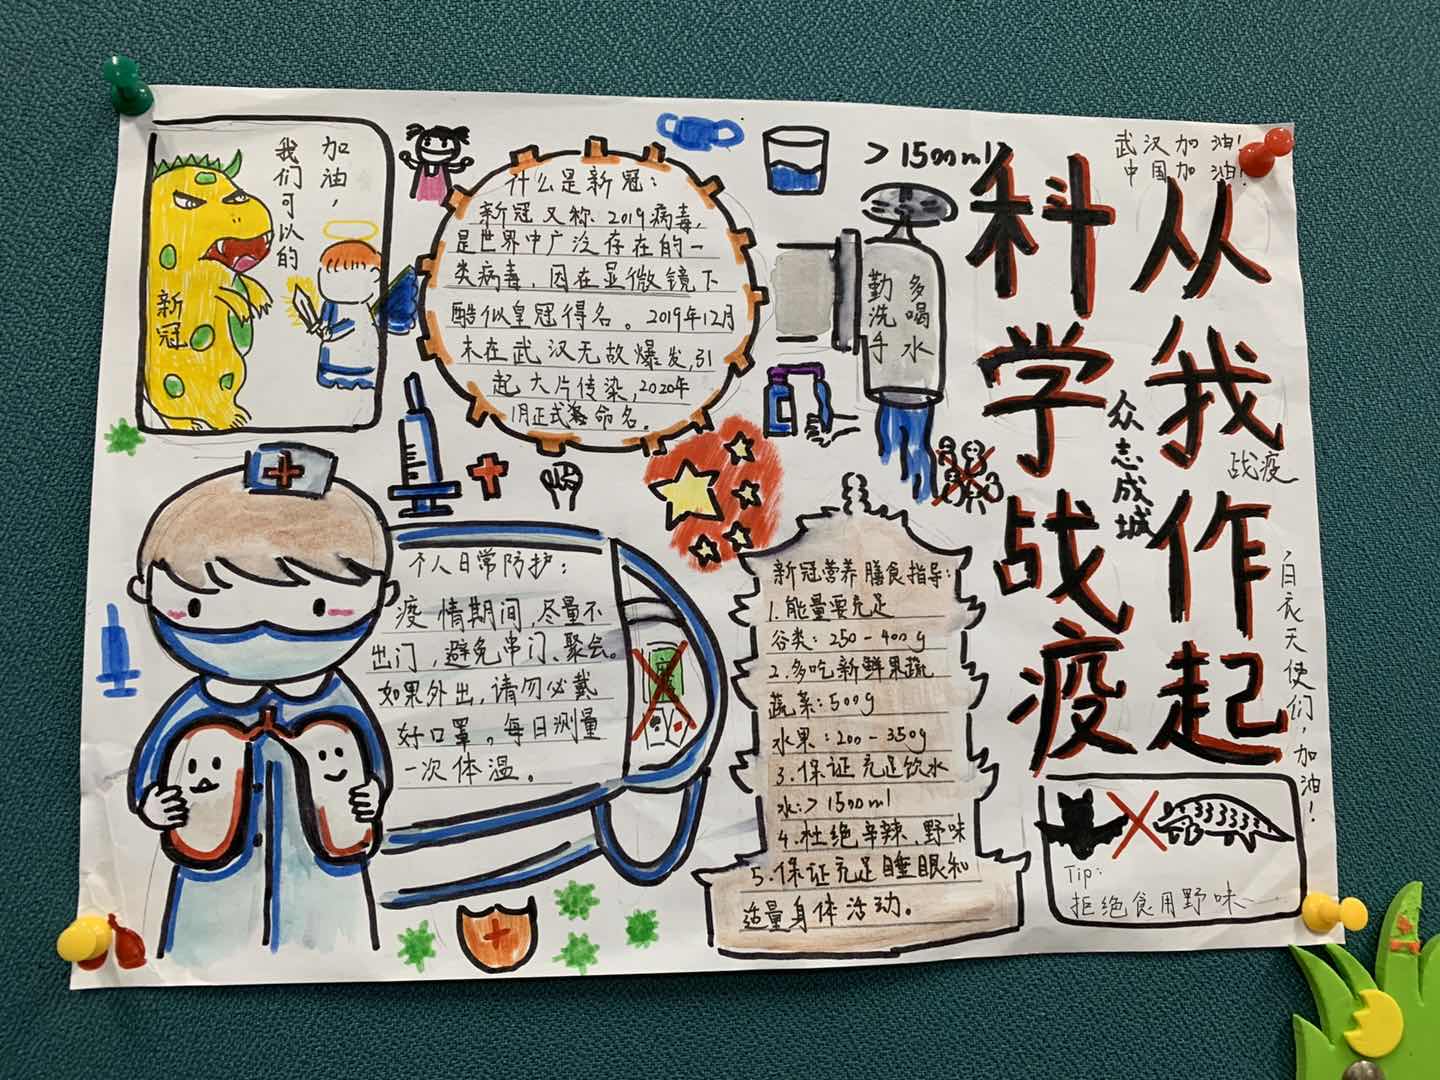 武汉加油！
中国加油！
从我作起
科学战疫
众志成城
战疫
白衣天使们，加油！
加油，
我们可以的
新冠
什么是新冠：
新冠又称2019病毒，
是世界中广泛存在的一
类病毒，因在显微镜下
酷似皇冠得名。2019年12月
末在武汉无故爆发，引
起大片传染，2020年
1月正式命名。
>1500ml
多喝水
勤洗手
个人日常防护：
疫情期间，尽量不
出门，避免串门、聚会。
如果外出，请勿必戴
好口罩。每日测量
一次体温。
新冠营养膳食指导：
1.能量要充足
谷类：250-400g
2.多吃新鲜果蔬
蔬菜：500g
水果：200-350g
3.保证充足饮水
水：>1500ml
4.杜绝辛辣、野味
5.保证充足睡眠和
适量身体活动。
Tip:
拒绝食用野味